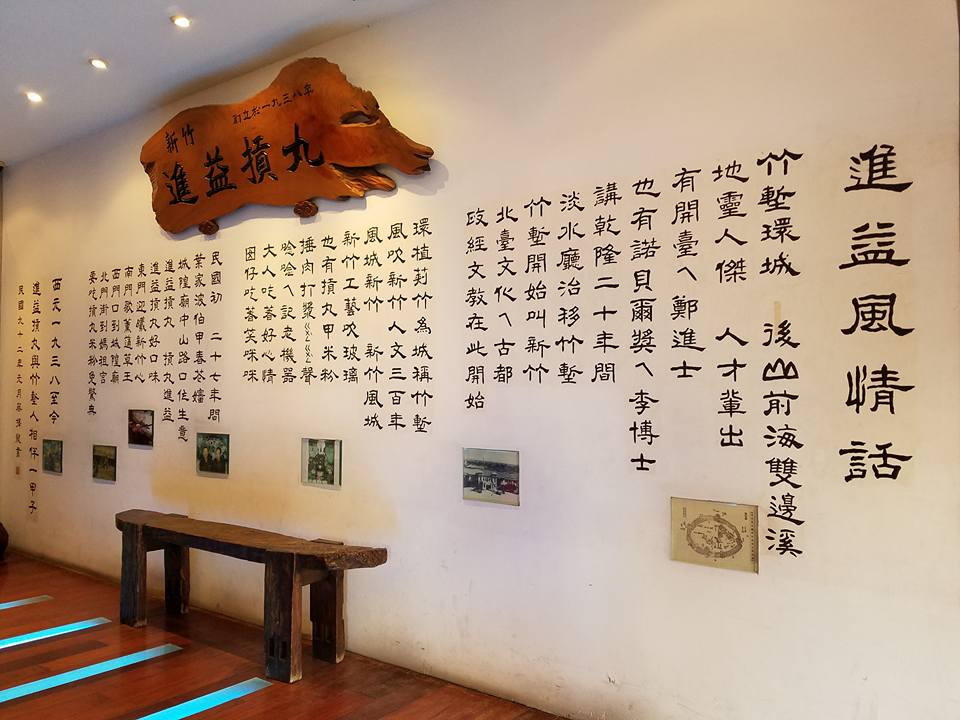 創立於一九三八年
新竹
進益摃丸
進益風情話
竹塹環城 後山前海雙邊溪
地靈人傑 人才輩出
有開臺ㄟ鄭進士
也有諾貝爾獎ㄟ李博士
講乾隆二十年間
淡水廳治移竹塹
竹塹開始叫新竹
北臺文化ㄟ古都
政經文教在此開始
環植莿竹為城稱竹塹
風吹新竹人文三百年
風城新竹 新竹風城
新竹工藝吹玻璃
也有摃丸甲米粉
捶肉打漿ㄍㄍ聲
唸唸ㄟ記老機器
大人吃著好心情
囡仔吃著笑咪咪
民國初 二十七年間
葉家波伯甲春苳嬸
城隍廟中山路口住生意
進益摃丸 摃丸進益
進益摃丸好口味
東門迎曦新竹心
南門歌薰蓮草王
西門口到城隍廟
北門街到媽祖宮
要吃摃丸米粉受繁典
西元一九三八至今
進益摃丸與竹塹人相伴一甲子
民國九十二年元月